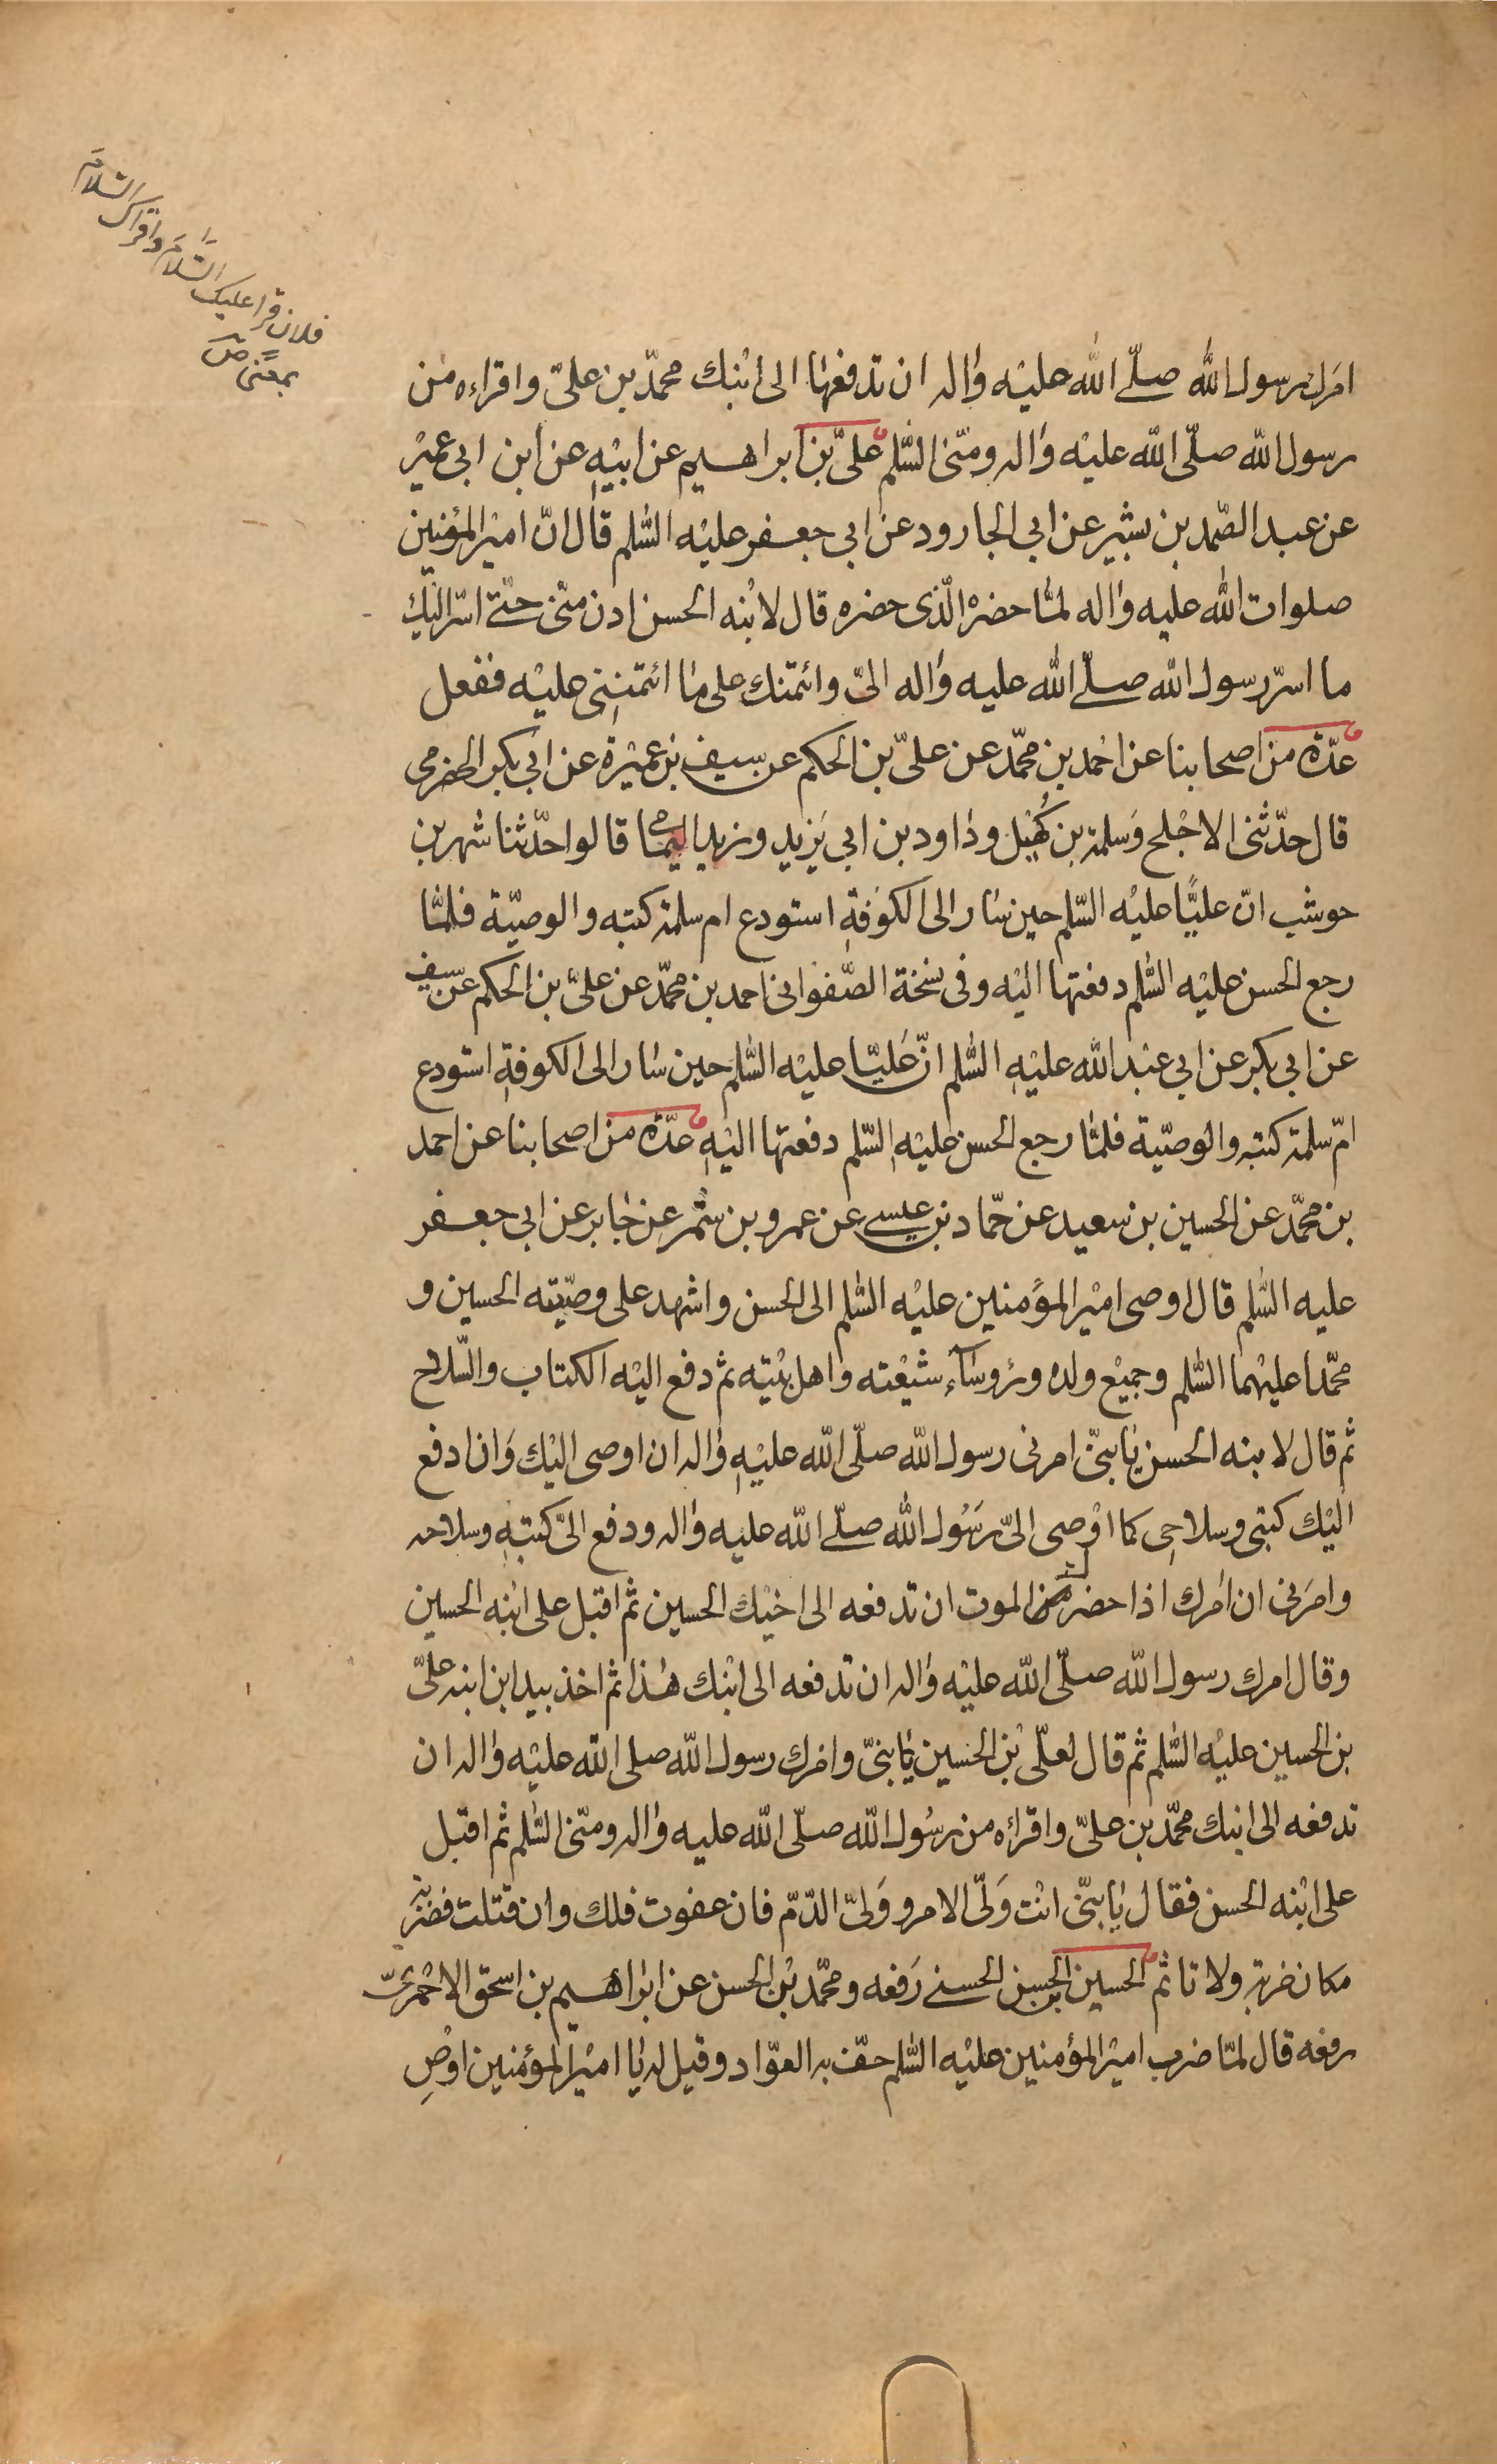 فلان قرا عليك السّلامَ واقراك السّلامَ
بمعنى ص
امرك رسول الله صلّى الله عليه واله ان تدفعها الى ابنك محمّد بن علىّ واقراءه من
رسول الله صلّى الله عليه واله ومنّى السّلم علىّ بن ابراهيم عن ابيه عن ابن ابى عمير
عن عبد الصّمد بن بشير عن ابى الجارود عن ابى جعفر عليه السّلم قال انّ امير المؤمنين
صلوات الله عليه واله لمّا حضره الّذى حضره قال لابنه الحسن ادن منّى حتّى اسرّ اليك
ما اسرّ رسول الله صلّى الله عليه واله الىّ وائتمنك على ما ائتمننى عليه ففعل
عدّة من اصحابنا عن احمد بن محمّد عن علىّ بن الحكم عن سيف بن عميرة عن ابى بكر الحضرمى
قال حدّثنى الاجلح وسلمة بن كهيل وداود بن ابى يزيد وزيد اليمامى قالوا حدّثنا شهر بن
حوشب انّ عليّا عليه السّلم حين سار الى الكوفة استودع ام سلمة كتبه والوصيّة فلمّا
رجع الحسن عليه السّلم دفعتها اليه وفى نسخة الصّفوانى احمد بن محمّد عن علىّ بن الحكم عن سيف
عن ابى بكر عن ابى عبد الله عليه السّلم انّ عليّا عليه السّلم حين سار الى الكوفة استودع
امّ سلمة كتبه والوصيّة فلمّا رجع الحسن عليه السّلم دفعتها اليه عدّة من اصحابنا عن احمد
بن محمّد عن الحسين بن سعيد عن حمّاد بن عيسى عن عمرو بن شمر عن جابر عن ابى جعفر
عليه السّلم قال اوصى امير المؤمنين عليه السّلم الى الحسن واشهد على وصيّته الحسين و
محمّدا عليهما السّلم وجميع ولده ورؤساء شيعته واهل بيته ثم دفع اليه الكتاب والسّلاح
ثم قال لابنه الحسن يا بنىّ امرنى رسول الله صلّى الله عليه واله ان اوصى اليك وان ادفع
اليك كتبى وسلاحى كما اوصى الىّ رسول الله صلّى الله عليه واله ودفع الىّ كتبه وسلاحه
وامرنى ان امرك اذا حضرك الموت ان تدفعه الى اخيك الحسين ثم اقبل على ابنه الحسين
وقال امرك رسول الله صلّى الله عليه واله ان تدفعه الى ابنك هذا ثم اخذ بيد ابن ابنه علىّ
بن الحسين عليه السّلم ثم قال لعلّى بن الحسين يا بنىّ وامرك رسول الله صلى الله عليه واله ان
تدفعه الى ابنك محمّد بن علىّ واقراه من رسول الله صلّى الله عليه واله ومنّى السّلم ثم اقبل
على ابنه الحسن فقال يا بنىّ انت ولىّ الامر وولىّ الدّم فان عفوت فلك وان قتلت فضربة
مكان ضربة ولا تاثم الحسين بن الحسن الحسنى رفعه ومحمّد بن الحسن عن ابراهيم بن اسحق الاحمرىّ
رفعه قال لمّا ضرب امير المؤمنين عليه السّلم حفّ به العوّاد وقيل له يا امير المؤمنين اوصِ